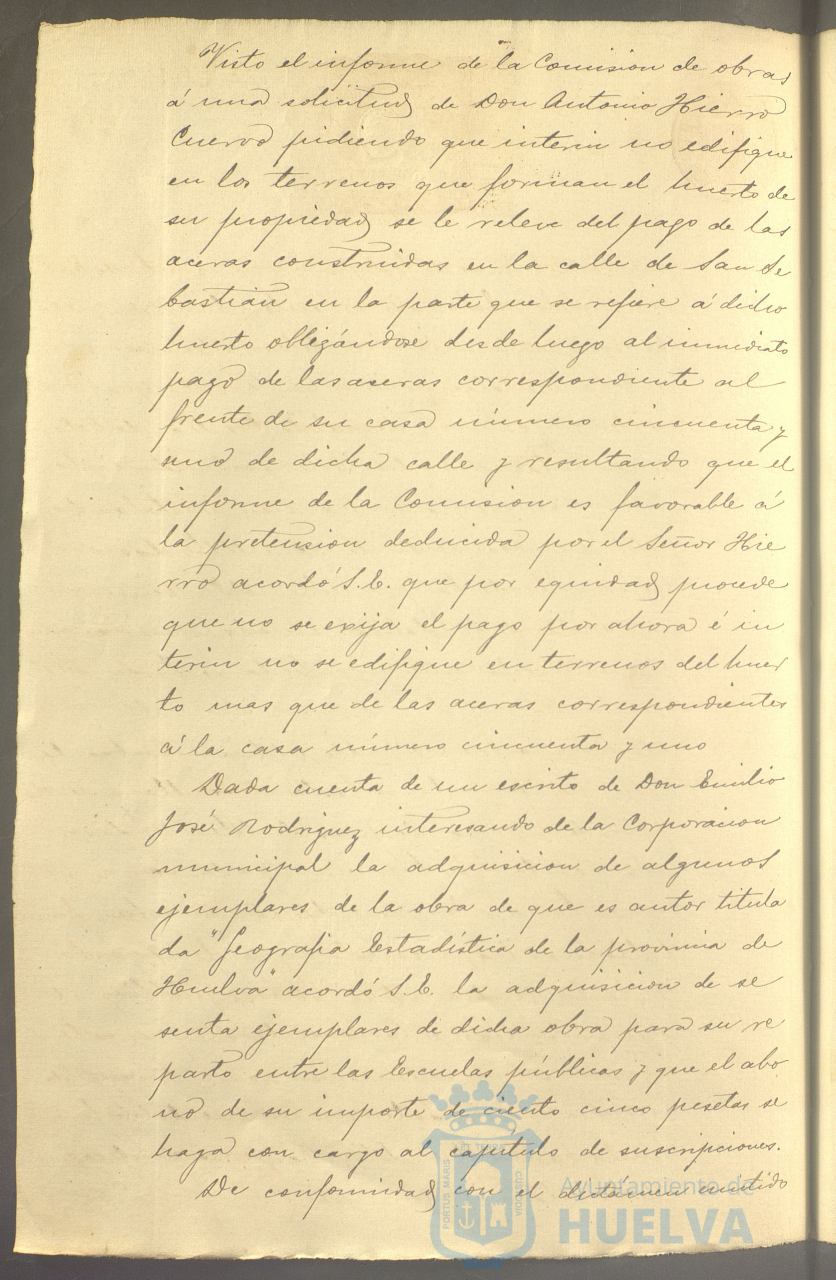 Visto el informe de la Comision de obras
á una solicitud de Don Antonio Hierro
Cuervo pidiendo que interin no edifique
en los terrenos que forman el huerto de
su propiedad se le releve del pago de las
aceras construidas en la calle de San Se
bastián en la parte que se refiere á dicho
huerto obligándose desde luego al inmediato
pago de las aseras correspondiente al
frente de su casa número cincuenta y
uno de dicha calle y resultando que el
informe de la Comision es favorable á
la pretension deducida por el Señor Hie
rro acordó S.E. que por equidad procede
que no se exija el pago por ahora é in
terin no se edifique en terrenos del huer
to mas que de las aceras correspondientes
á la casa número cincuenta y uno
Dada cuenta de un escrito de Don Emilio
José Rodriguez interesando de la Corporacion
municipal la adquisicion de algunos
ejemplares de la obra de que es autor titula
da "Geografia Estadística de la provincia de
Huelva" acordó S.E. la adquisicion de se
senta ejemplares de dicha obra para su re
parto entre las Escuelas públicas y que el abo
no de su importe de ciento cinco pesetas se
haga con cargo al capítulo de suscripciones.
De conformidad con el dictámen emitido
PORTUS MARIS ET TERRAE CUSTODIA
Ayuntamiento de
HUELVA